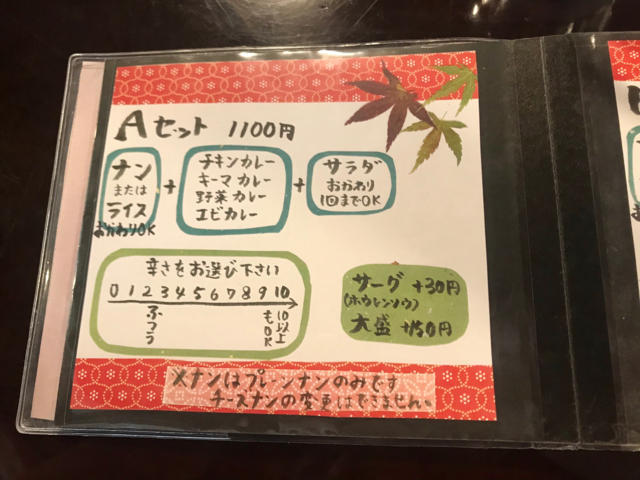 Aセット 1100円
ナン
または
ライス
おかわりOK
+
チキンカレー
キーマカレー
野菜カレー
エビカレー
+
サラダ
おかわり
1回までOK
辛さをお選び下さい
0 1 2 3 4 5 6 7 8 9 10
ふつう
10以上
もOK
サーグ +30円
(ホウレンソウ)
大盛 +150円
※ナンはプレーンナンのみです
チーズナンの変更はできません。